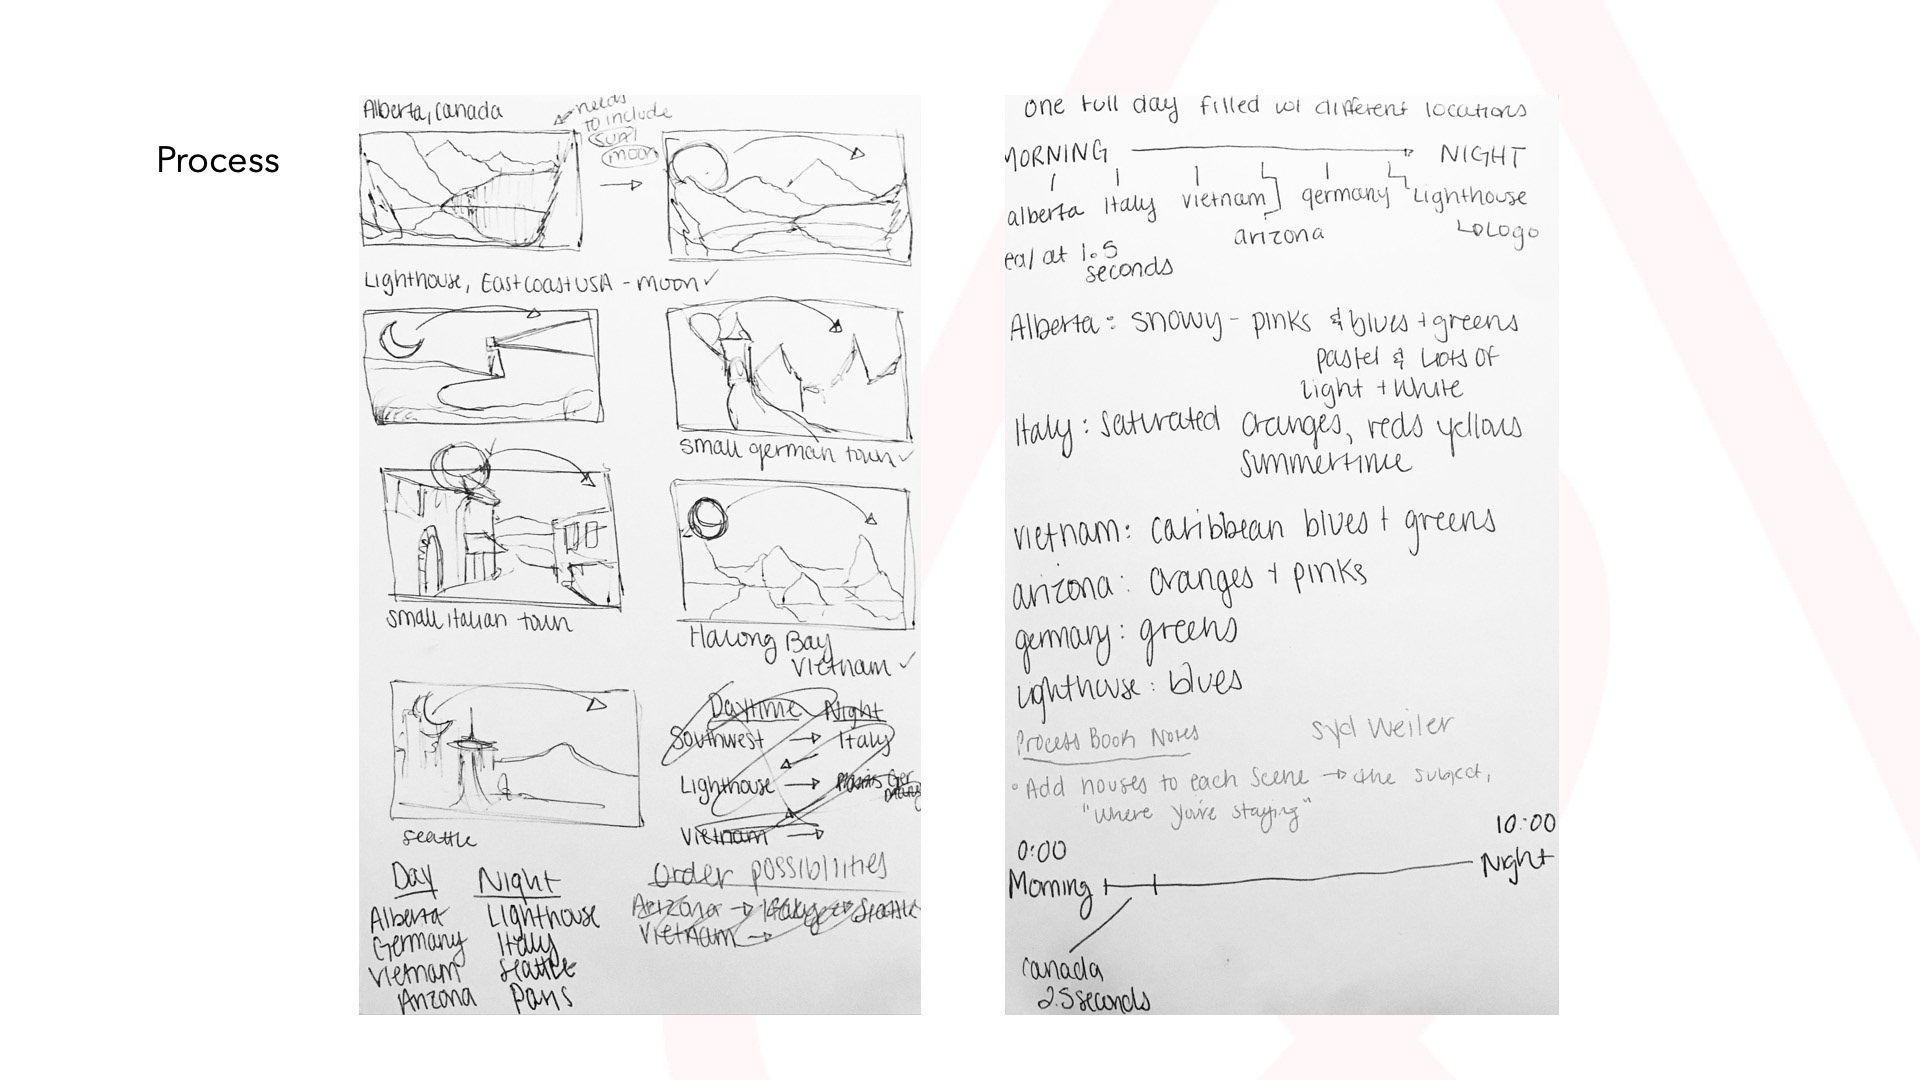 Process
Alberta, Canada
needs
to include
sun/
moon
Lighthouse, East coast USA - moon ✓
small german town ✓
small italian town
Halong Bay
Vietnam ✓
seattle
Daytime Night
Southwest → Italy
Lighthouse →
Vietnam →
Day Night
Alberta Lighthouse
Germany Italy
Vietnam Seattle
Arizona Paris
Order possibilities
Arizona → Italy → Seattle
Vietnam →
one full day filled w/ different locations
MORNING → NIGHT
alberta Italy vietnam germany Lighthouse
arizona
↳ Logo
ea/ at 1.5
seconds
Alberta: snowy - pinks & blues + greens
pastel & Lots of
light + white
Italy: saturated oranges, reds yellows
summertime
vietnam: caribbean blues + greens
arizona: oranges + pinks
germany: greens
lighthouse: blues
Process Book Notes
Syd Weiler
• Add houses to each scene → the subject,
"where you're staying"
0:00
10:00
Morning
Night
Canada
2.5 seconds